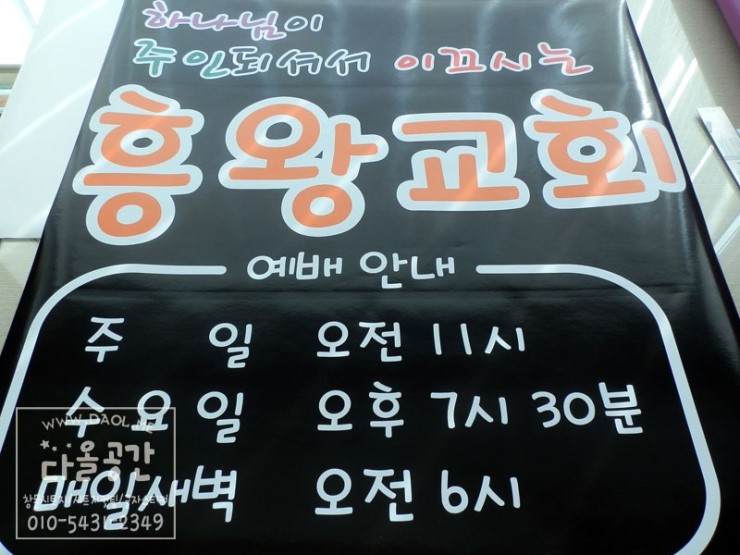 하나님이
주인되셔서 이끄시는
흥왕교회
예배 안내
주 일 오전 11시
수요일 오후 7시 30분
매일새벽 오전 6시
WWW.DAOL.ME
다올공간
010-5431-2349